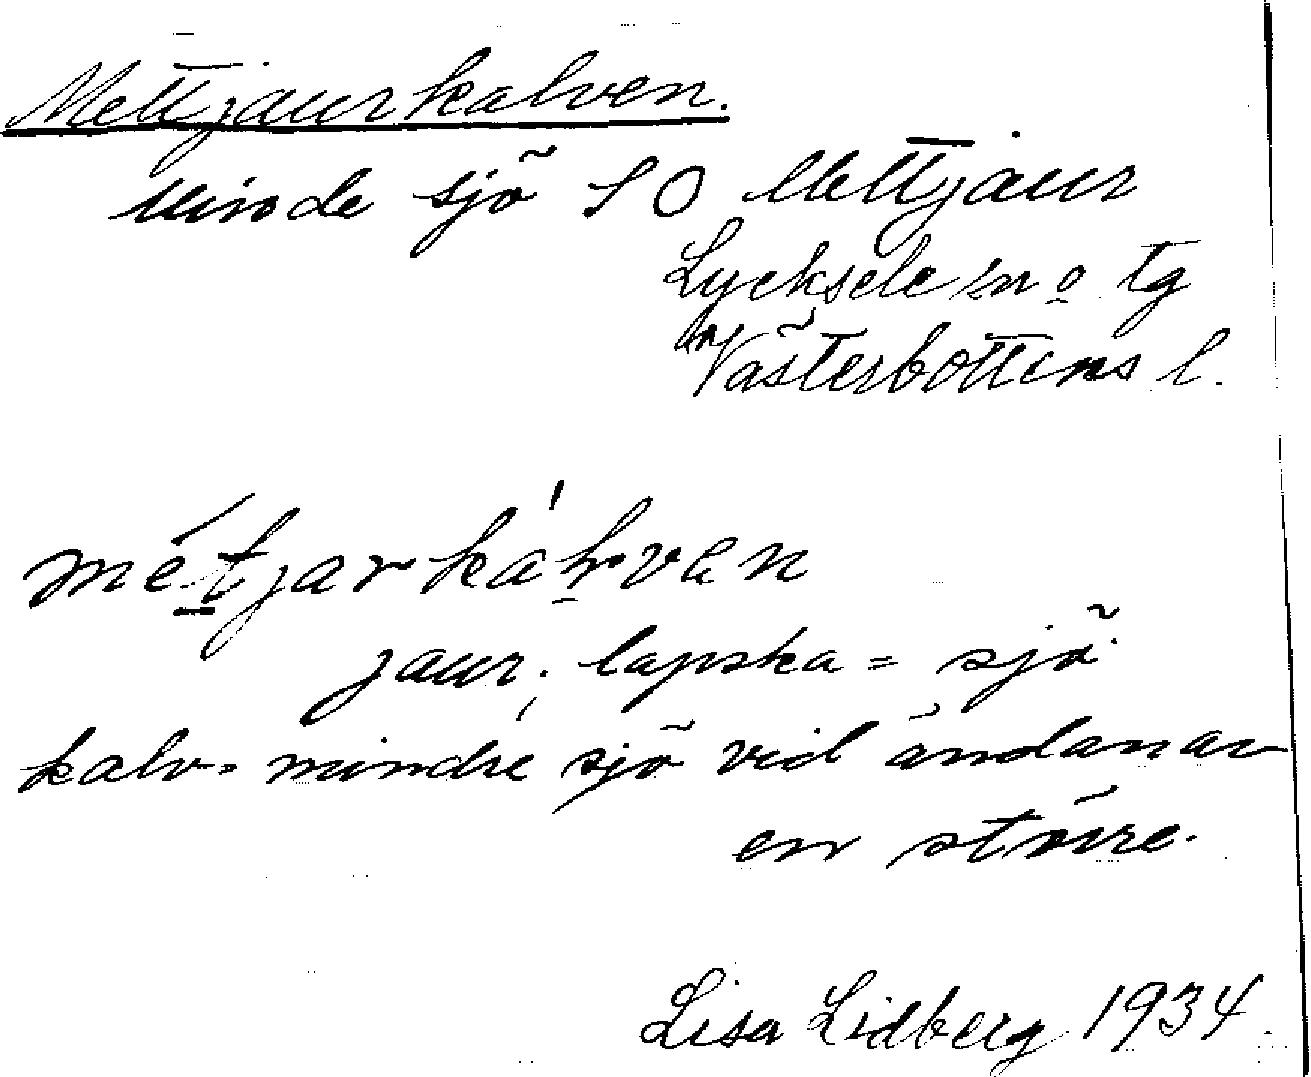 Mettjaurkalven.
Minde sjö SO Mettjaur
Lycksele sn o tg
Västerbottens l.
métjarkálvan
jaur; lapska = sjö
kalv = mindre sjö vid ändan av
en större.
Lisa Lidberg 1934